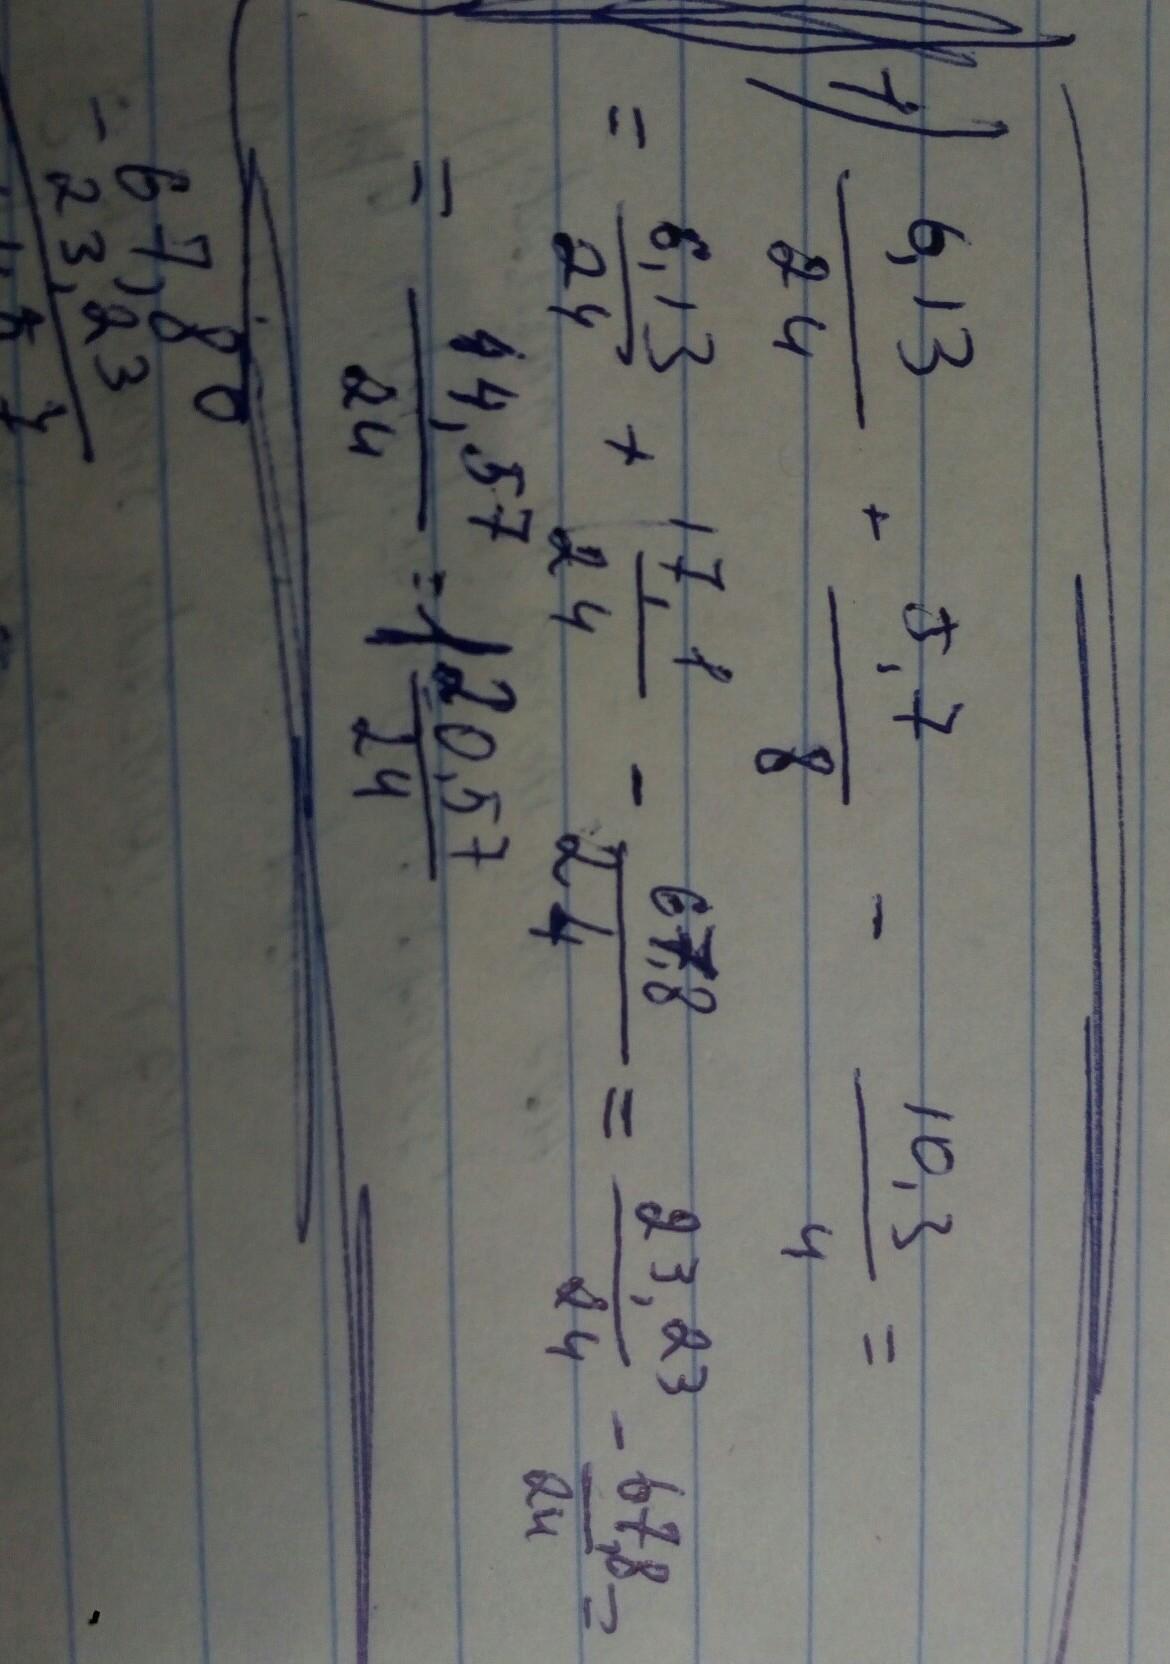 1) 6,13/24 + 5,7/8 - 10,3/4 =
= 6,13/24 + 17,1/24 - 67,8/24 = 23,23/24 - 67,8/24 =
= 44,57/24 = 1 20,57/24
- 67,80
23,23